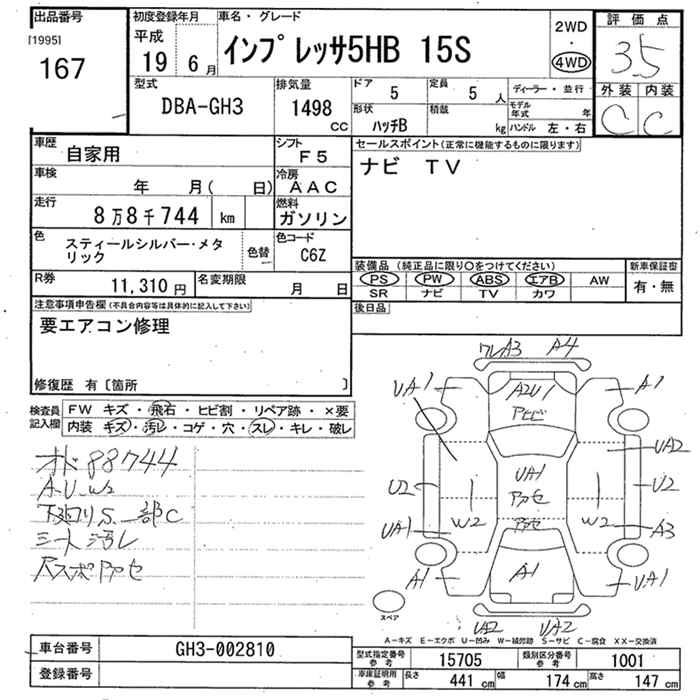 出品番号
[1995]
167
初度登録年月
平成
19 6月
車名・グレード
インプレッサ5HB 15S
2WD
・
4WD
評価点
3.5
外装 内装
C C
型式
DBA-GH3
排気量
1498
CC
ドア
5
定員
5 人
形状
ハッチB
積載
kg
ディーラー・並行
モデル年式 年
ハンドル 左・右
車歴
自家用
シフト
F5
車検
年 月( 日)
冷房
AAC
走行
8万8千744 km
燃料
ガソリン
色
スティールシルバー・メタリック
色替
色コード
C6Z
R券
11,310円
名変期限
月 日
セールスポイント(正常に機能するものに限ります)
ナビ TV
装備品(純正品に限り○をつけてください)
PS PW ABS エアB AW
SR ナビ TV カワ
新車保証書
有・無
後日品
注意事項申告欄(不具合内容等は具体的に記入して下さい)
要エアコン修理
修復歴 有〔箇所 〕
検査員記入欄
FW キズ・飛石・ヒビ割・リペア跡・×要
内装 キズ・汚レ・コゲ・穴・スレ・キレ・破レ
オド88744
A.U.W2
下廻りS.一部C
シート汚レ
ワレA3 A4
UA1 A2U1 A1
アトビ
UA2
U2 UA1 U2
アカセ
W2 W2
UA1 アカセ A3
A1 A1 UA1
スペア
UA2 UA2
A-キズ E-エクボ U-凹み W-補修跡 S-サビ C-腐食 XX-交換済
車台番号
GH3-002810
登録番号
型式指定番号
参考
15705
類別区分番号
参考
1001
車庫証明用
参考
長さ 441 cm
幅 174 cm
高さ 147 cm